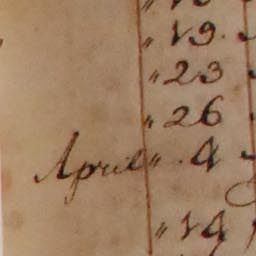 " 19.
" 23
" 26
April " . 4
" 14